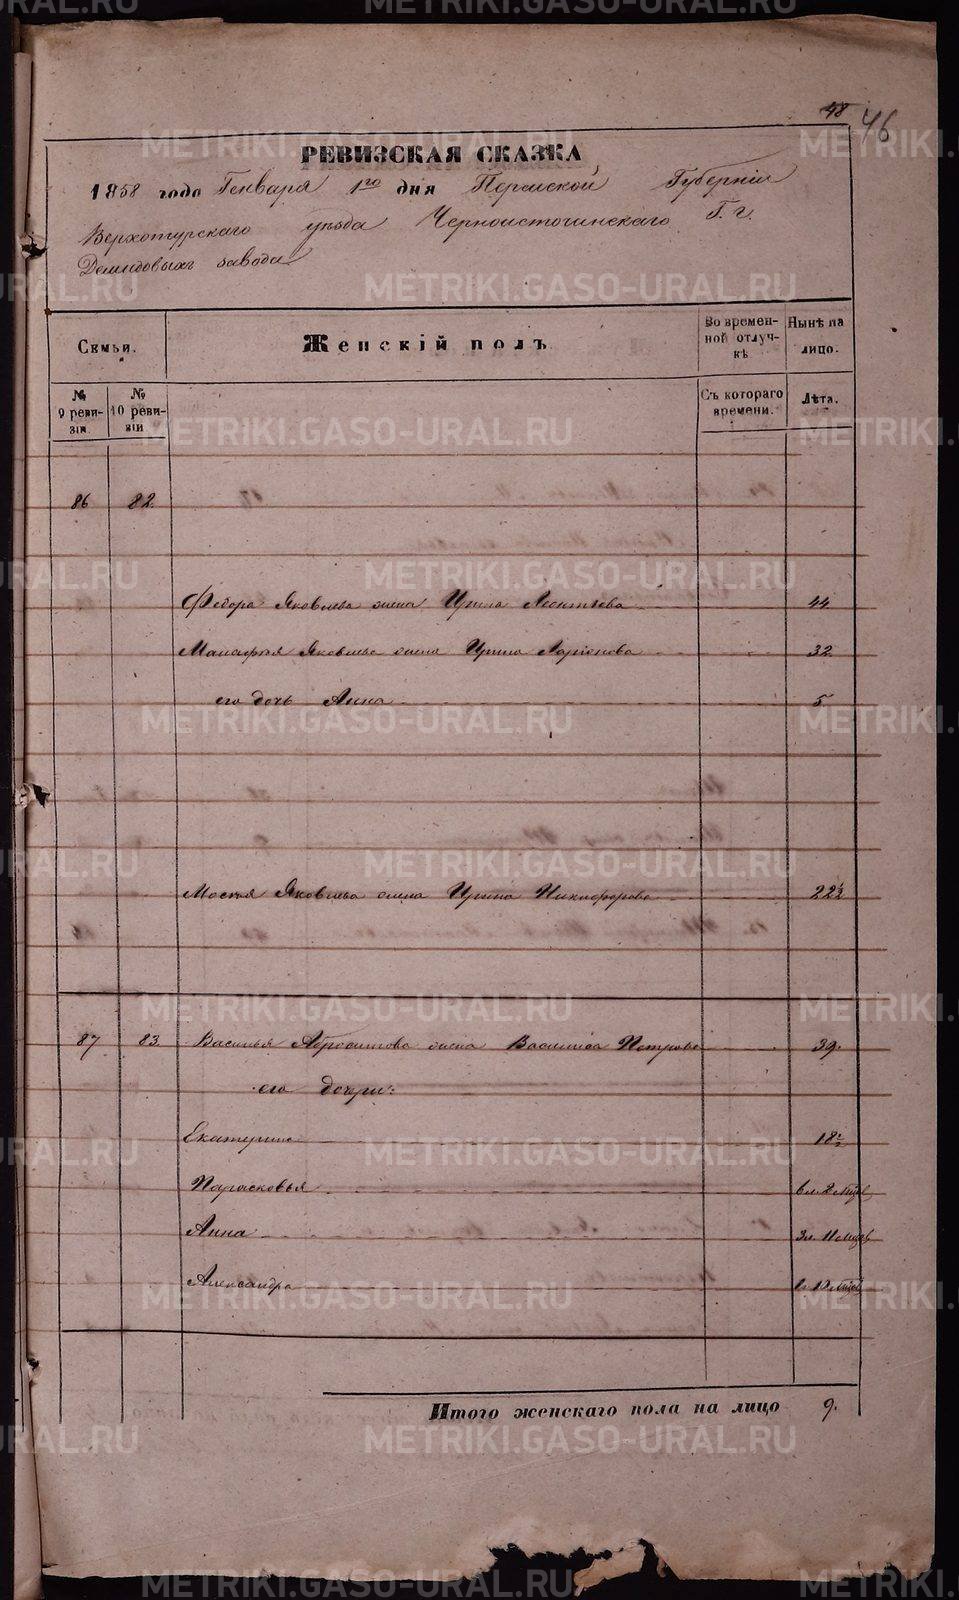 48 46
РЕВИЗСКАЯ СКАЗКА
1858 года Генваря 1го дня Пермской Губернiи
Верхотурскаго уѣзда Черноисточинскаго Г. г.
Демидовыхъ завода
Семьи.
Женскій полъ
Во времен-
ной отлуч-
кѣ
Нынѣ на
лицо.
№
9 реви-
зіи
№
10 реви-
зіи
Съ котораго
времени.
Лѣта.
86 82
Федора Яковлева жена Ирина Леонтьева 44
Яковлева жена Ирина Ларіонова 32
его дочь Анна 5
Яковлева жена Ирина Никифорова 22½
87 83 Василья Абросимова жена Василиса Петрова 39.
его дочери:
Екатерина 18½
Парасковья
Анна 3л. 11 мцовъ
Александра 10 мцовъ
Итого женскаго пола на лицо 9.
METRIKI.GASO-URAL.RU